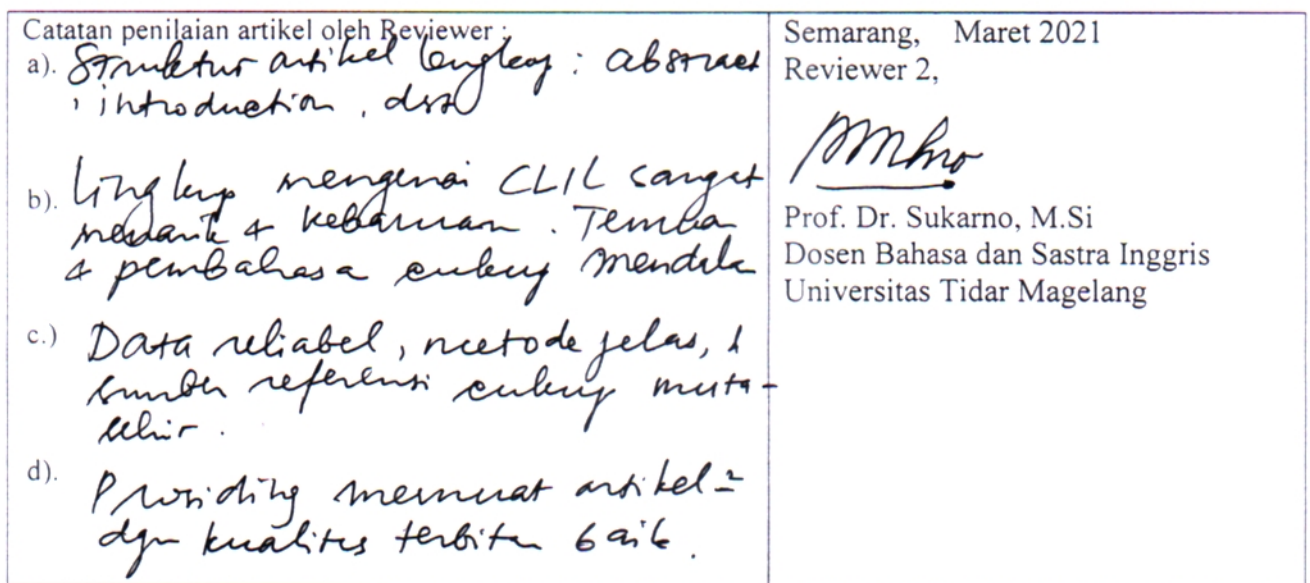 Catatan penilaian artikel oleh Reviewer :
a). Struktur artikel lengkap : abstract
, introduction, dst
b). Lingkup mengenai CLIL sangat
menarik & kebaruan. Temuan
& pembahasa cukup mendala
c.) Data reliabel, metode jelas, &
sumber referensi cukup muta-
khir.
d). Prosiding memuat artikel²
dgn kualitas terbitan baik.
Semarang, Maret 2021
Reviewer 2,
Prof. Dr. Sukarno, M.Si
Dosen Bahasa dan Sastra Inggris
Universitas Tidar Magelang